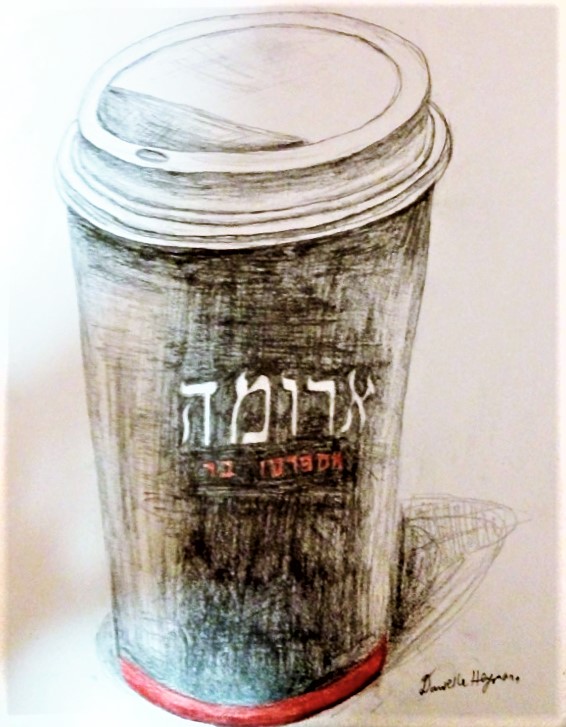 ארומה
אספרסו בר
Danielle Heyman